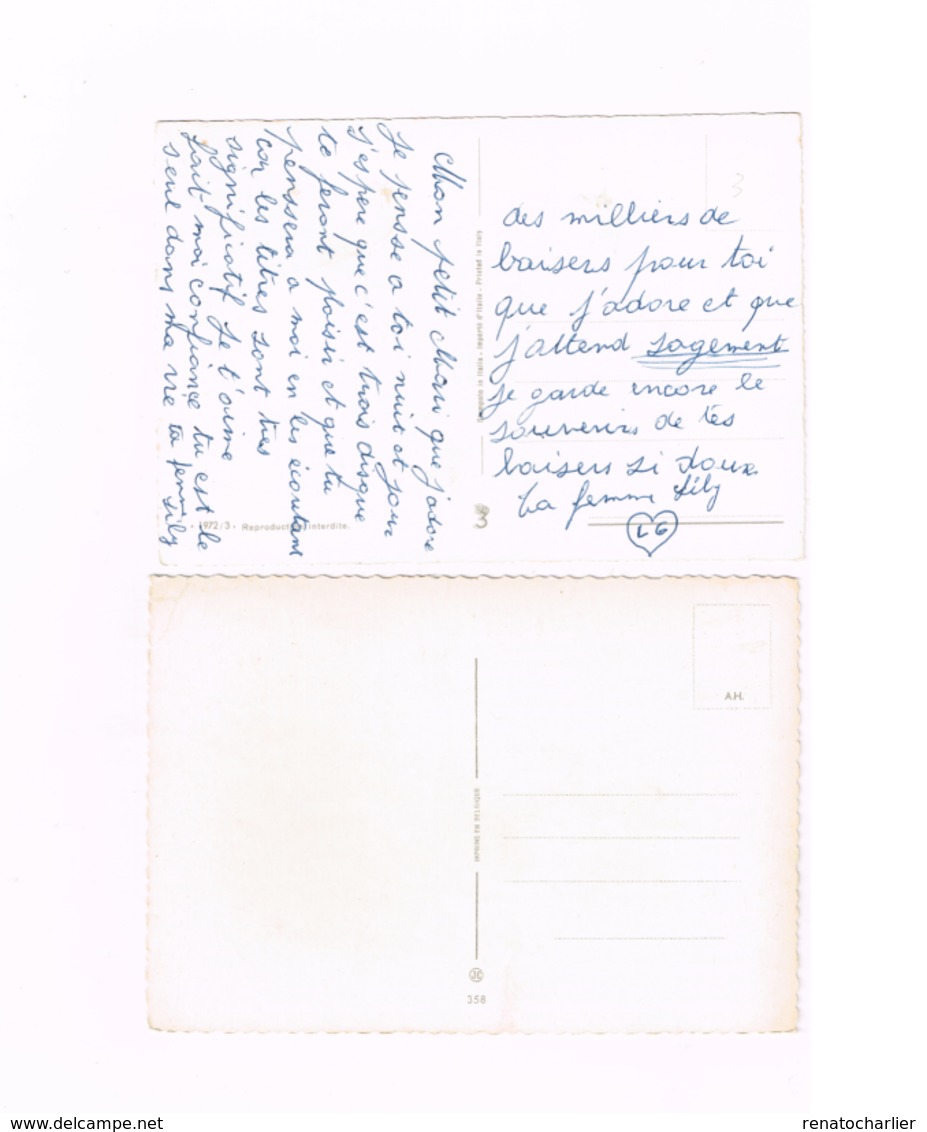 Mon petit Mari que j'adore
Je pensse a toi nuit et jour
J'espere que c'est trois disque
te feront plaisir et que tu
penssera a moi en les écoutant
car les titres sont tres
significatif Je t'aime
fait moi confiance tu est le
seul dans ma vie ta femme Lily
1972/3 - Reproduction interdite.
Printed in Italy
3
3
des milliers de
baisers pour toi
que j'adore et que
j'attend sagement
je garde encore le
souvenirs de tes
baisers si doux
ta femme Lily
LG
A.H.
IMPRIMÉ EN BELGIQUE
JC
358
delcampe.net
renatocharlier